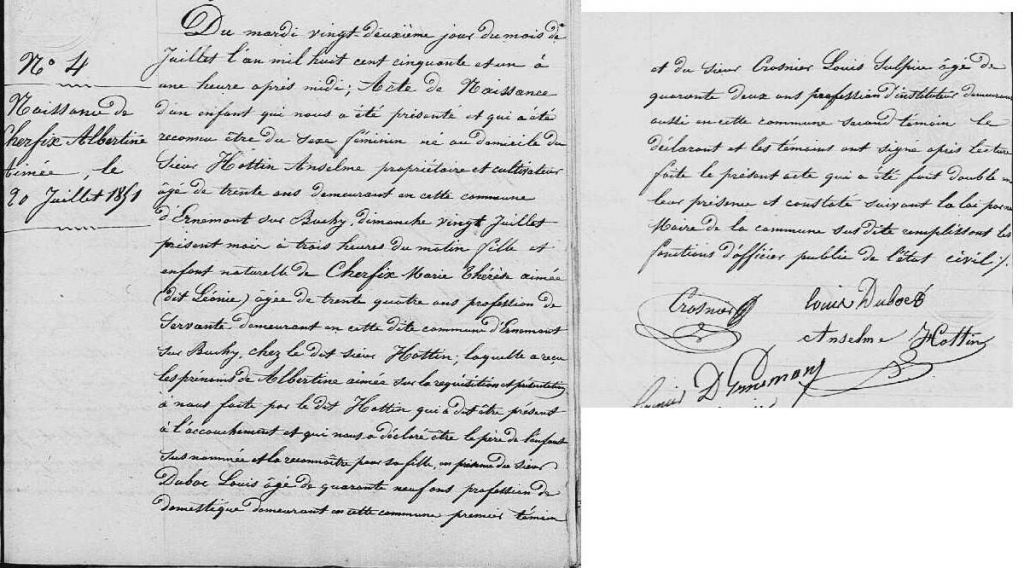 N° 4
Naissance de
Cherfix Albertine
Aimée, le
20 Juillet 1851
Du mardi vingt-deuxième jour du mois de
Juillet l'an mil huit cent cinquante et un à
une heure après midi; Acte de Naissance
d'un enfant qui nous a été présenté et qui a été
reconnu être du sexe féminin né au domicile du
Sieur Hottin Anselme propriétaire et cultivateur
âgé de trente ans demeurant en cette commune
d'Ernemont sur Buchy, dimanche vingt Juillet
présent mois à trois heures du matin fille et
enfant naturelle de Cherfix Marie Thérèse aimée
(dit Léonie) âgée de trente quatre ans profession de
Servante demeurant en cette dite commune d'Ernemont
sur Buchy, chez le dit sieur Hottin; laquelle a reçu
les prénoms de Albertine aimée sur la requisition et présentation
à nous faite par le dit Hottin qui a dit être présent
à l'accouchement et qui nous a déclaré être le père de l'enfant
sus nommée et la reconnaître pour sa fille, en présence du sieur
Duboc Louis âgé de quarante neuf ans profession de
domestique demeurant en cette commune premier témoin
et du sieur Crosnier Louis Sulpice âgé de
quarante deux ans profession d'instituteur demeurant
aussi en cette commune second témoin le
déclarant et les témoins ont signé après lecture
faite le présent acte qui a été fait double en
leur présence et constaté suivant la loi par nous
Maire de la commune sus dite remplissant les
fonctions d'officier public de l'état civil /.
Crosnier Louis Duboc
Anselme Hottin
Louis D'Ernemont